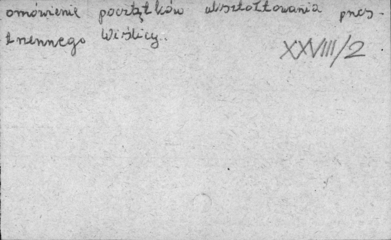 omówienie początków ukształtowania przes
trzennego Wiślicy.
XXVIII/2